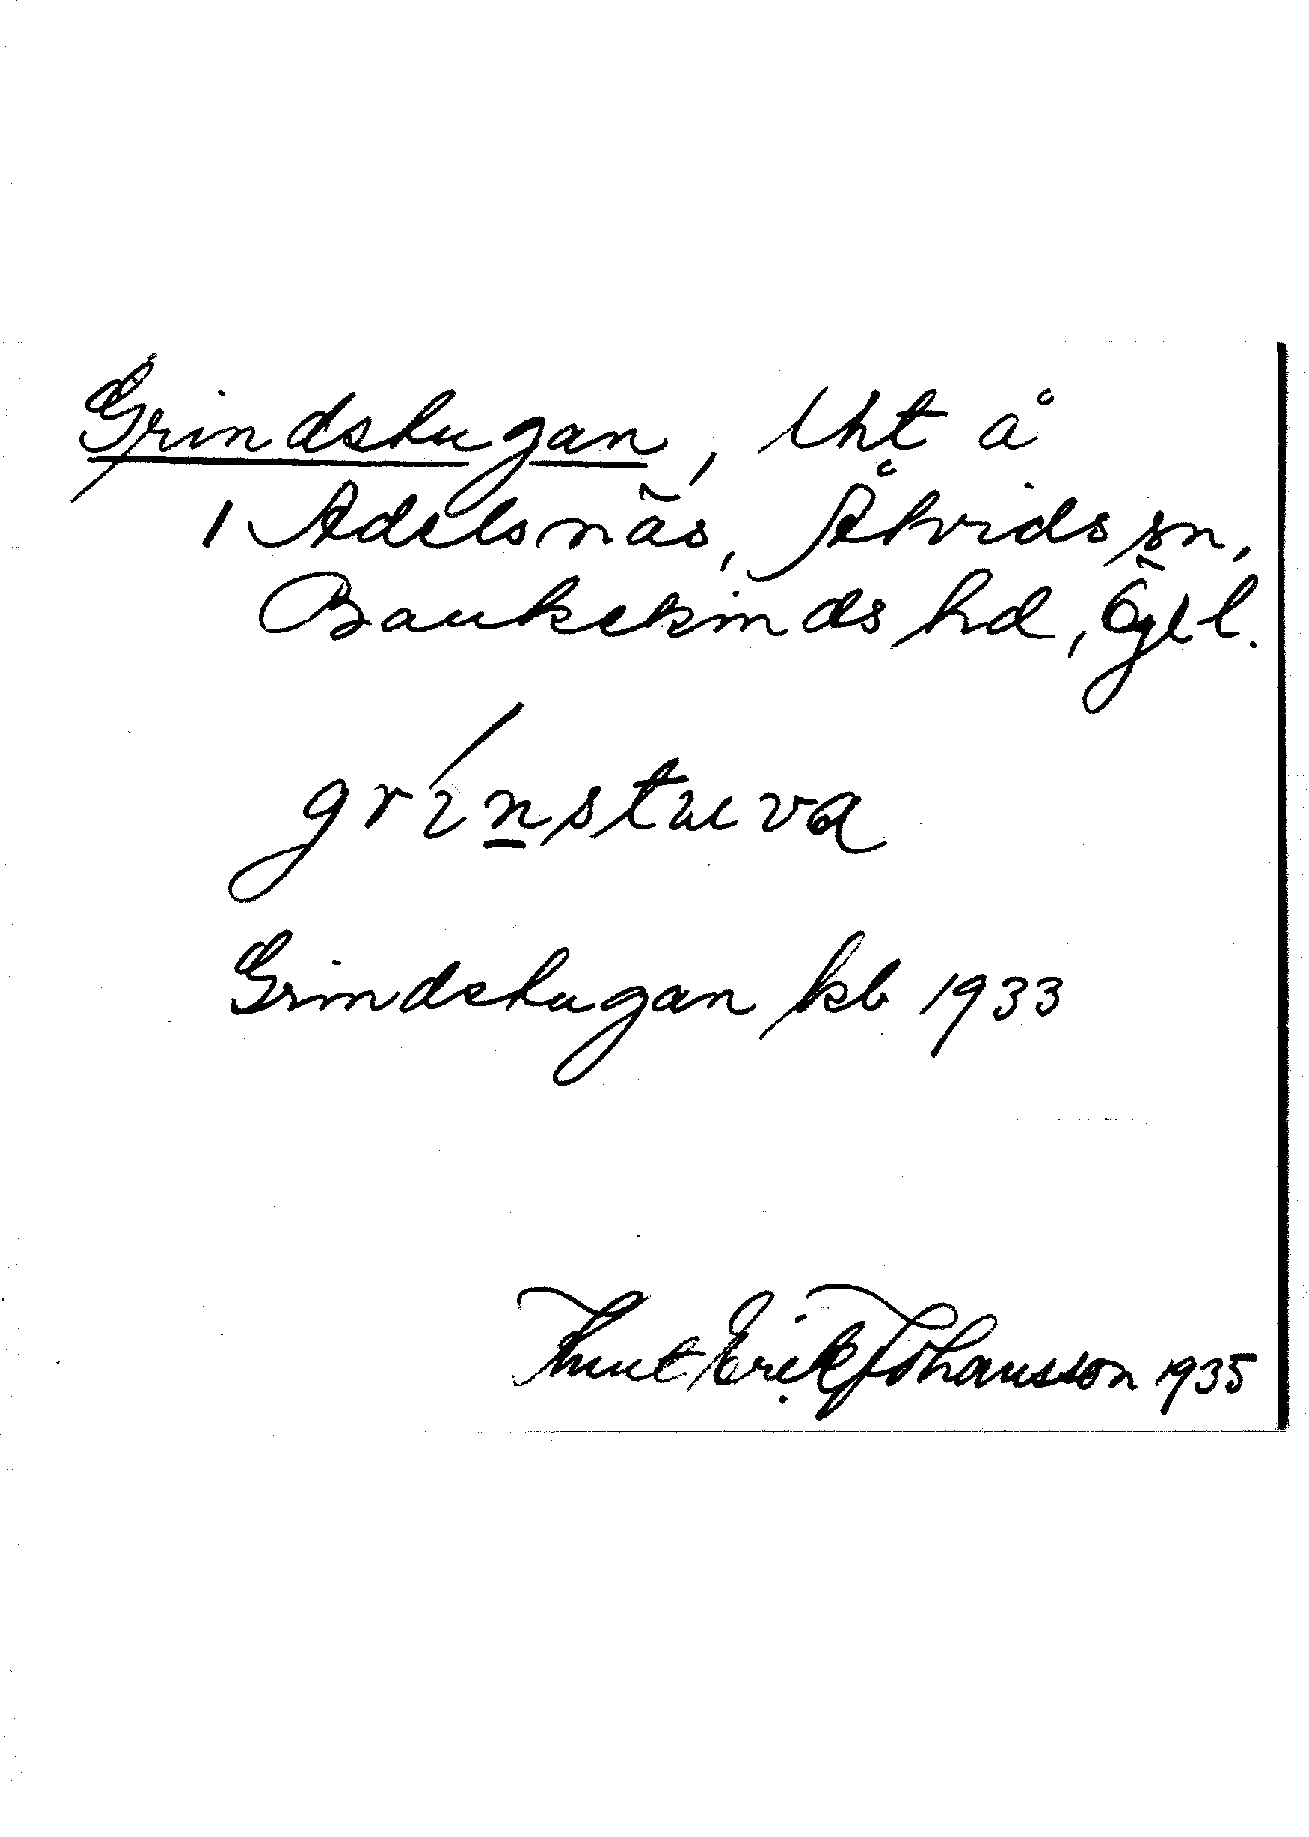 Grindstugan, lht å
1 Adelsnäs, Åtvids sn,
Bankekinds hd, Ögtl.
grinstuva
Grindstugan kb 1933
Knut Erik Johansson 1935